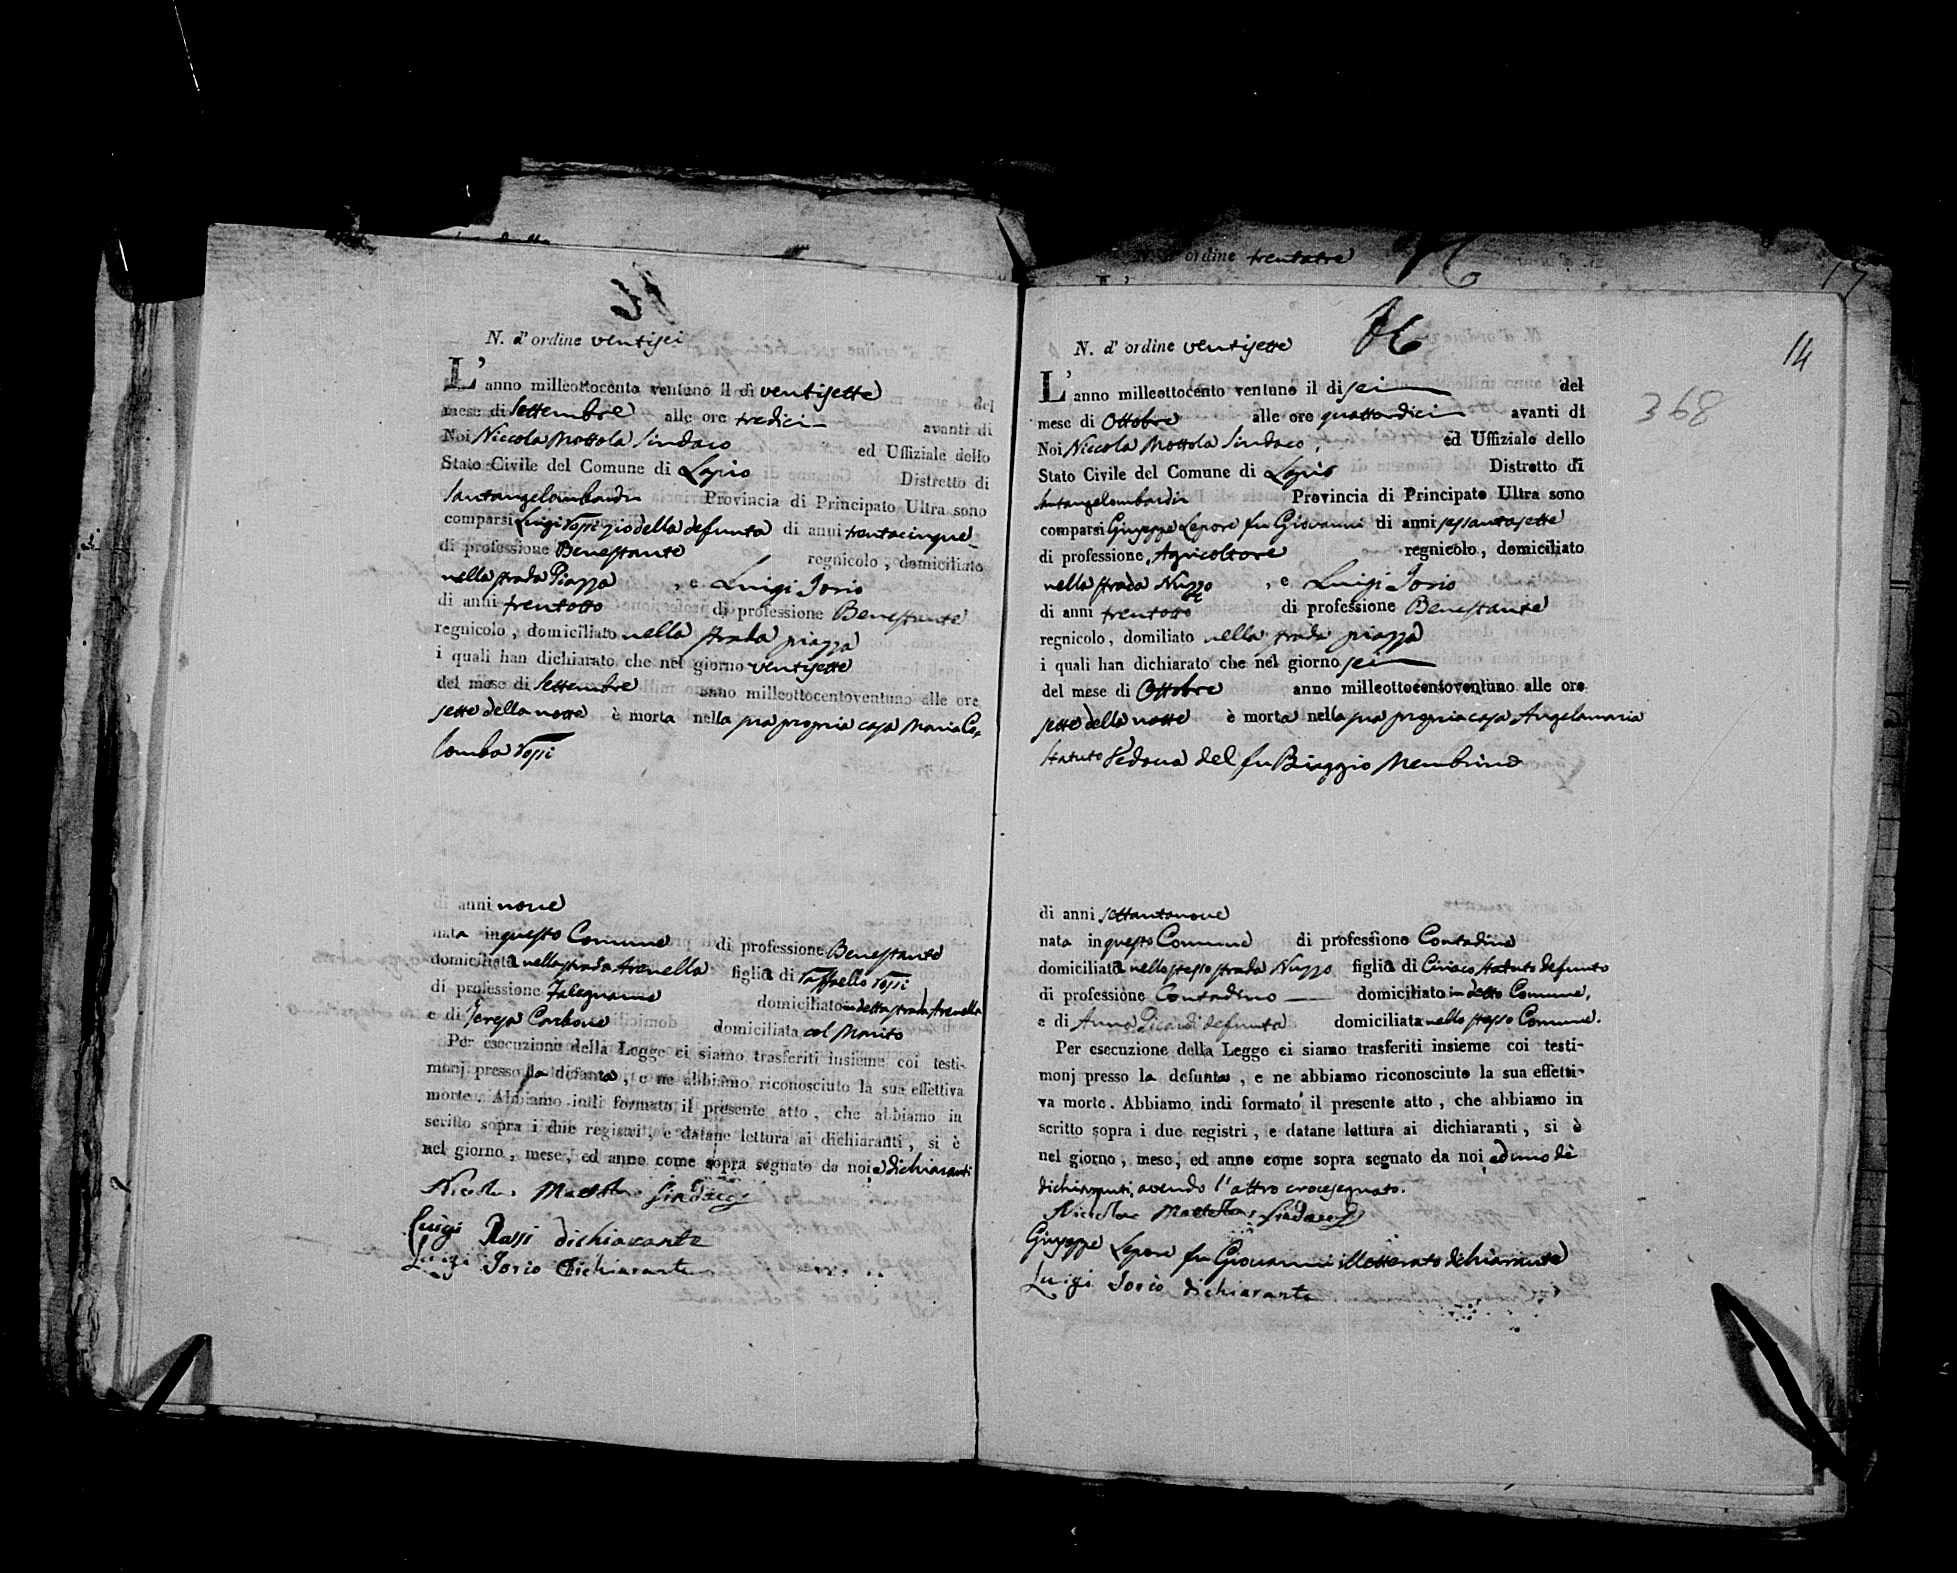 N. d'ordine ventisei
L'anno milleottocento ventuno il dì ventisette del
mese di Settembre alle ore tredici avanti di
Noi Niccola Mottola Sindaco ed Uffiziale dello
Stato Civile del Comune di Lapio Distretto di
Santangelombardi Provincia di Principato Ultra sono
comparsi Luigi Rossi zio della defunta di anni trentacinque
di professione Benestante regnicolo, domiciliato
nella strada Piazza, e Luigi Iorio
di anni trentotto di professione Benestante
regnicolo, domiciliato nella strada piazza
i quali han dichiarato che nel giorno ventisette
del mese di Settembre anno milleottocentoventuno alle ore
sette della notte è morta nella sua propria casa Maria Co-
lomba Rossi
di anni nove
nata in questo Comune di professione Benestante
domiciliata nella strada Arenella figlia di Raffaello Rossi
di professione Falegname domiciliato in detta strada Arenella
e di Teresa Carbone domiciliata col Marito
Per esecuzione della Legge ci siamo trasferiti insieme coi testi-
monj presso la defunta, e ne abbiamo riconosciuto la sua effettiva
morte. Abbiamo indi formato il presente atto, che abbiamo in
scritto sopra i due registri, e datane lettura ai dichiaranti, si è
nel giorno, mese, ed anno come sopra segnato da noi, e dichiaranti
Luigi Rossi dichiarante
Luigi Iorio Dichiarante
N. d'ordine trentatre
14
368
N. d'ordine ventisette
L'anno milleottocento ventuno il di sei del
mese di Ottobre alle ore quattordici avanti di
Noi Niccola Mottola Sindaco ed Uffiziale dello
Stato Civile del Comune di Lapio Distretto di
Santangelombardi Provincia di Principato Ultra sono
comparsi Giuseppe Lepore fu Giovanni di anni sessantasette
di professione Agricoltore regnicolo, domiciliato
nella strada Nuzzo, e Luigi Iorio
di anni trentotto di professione Benestante
regnicolo, domiliato nella strada piazza
i quali han dichiarato che nel giorno sei
del mese di Ottobre anno milleottocentoventuno alle ore
sette della notte è morta nella sua propria casa Angelamaria
Statuto Vedova del fu Biaggio Membrino
di anni settantanove
nata in questo Comune di professione Contadina
domiciliata nello stesso strada Nuzzo figlia di Ciriaco Statuto defunto
di professione Contadino domiciliato in detto Comune,
e di Anna defunta domiciliata nello stesso Comune.
Per esecuzione della Legge ci siamo trasferiti insieme coi testi-
monj presso la defunta, e ne abbiamo riconosciuto la sua effetti-
va morte. Abbiamo indi formato il presente atto, che abbiamo in
scritto sopra i due registri, e datane lettura ai dichiaranti, si è
nel giorno, mese, ed anno come sopra segnato da noi, ed uno dè
dichiaranti, avendo l'altro crocesegnato.
Giuseppe Lepore fu Giovanni illetterato dichiarante
Luigi Iorio dichiarante